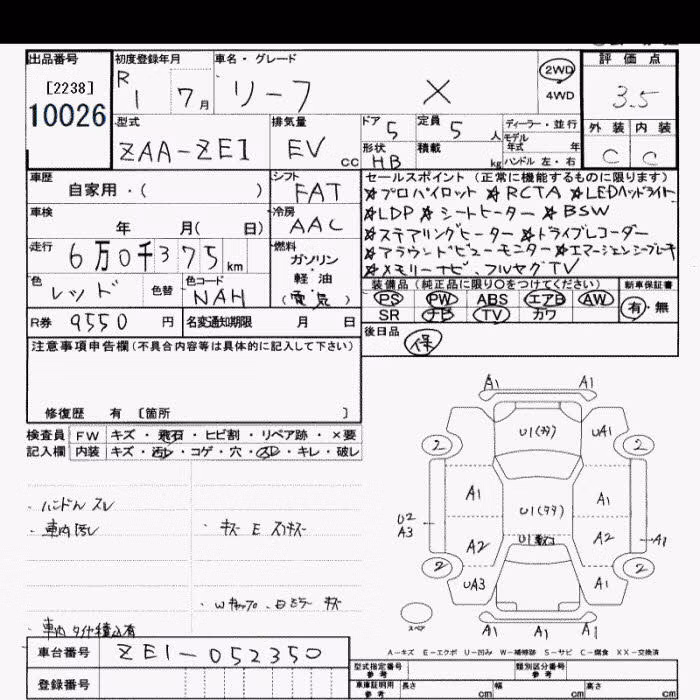 出品番号 初度登録年月 車名・グレード 評価点
[2238] R1 7月 リーフ X 2WD 3.5
10026 4WD
外装 内装
型式 排気量 ドア 5 定員 5人 ディーラー・並行 C C
ZAA-ZE1 EV cc モデル年式 年
形状 HB 積載 kg ハンドル 左・右
車歴 シフト セールスポイント (正常に機能するものに限ります)
自家用・( ) FAT ☆プロパイロット ☆RCTA ☆LEDヘッドライト
車検 冷房 ☆LDP ☆シートヒーター ☆BSW
年 月( 日) AAC ☆ステアリングヒーター ☆ドライブレコーダー
走行 6万0千375km 燃料 ☆アラウンドビューモニター ☆エマージェンシーブレーキ
ガソリン・軽油 (電気) ☆メモリーナビ、フルセグTV
色 レッド 色替 色コード NAH 装備品 (純正品に限り〇をつけてください) 新車保証書
PS PW ABS エアB AW 有・無
R券 9550円 名変通知期限 月 日 SR ナビ TV カワ
後日品 保
注意事項申告欄(不具合内容等は具体的に記入して下さい)
修復歴 有 [箇所 ]
検査員 FW キズ・飛石・ヒビ割・リペア跡・×要
記入欄 内装 キズ・汚レ・コゲ・穴・スレ・キレ・破レ
・ハンドルスレ
・車内汚レ
・キズ E スリキズ
・Wキャップ、日ミラーキズ
・車内タイヤ積込有
A1 A1
2 U1(タタ) UA1 2
A1 U1(タタ) A1
U2 A3 A2 A2 A1
2 UA3 A1 2
スペア A1 A1 A1
A-キズ E-エクボ U-凹み W-補修跡 S-サビ C-腐食 XX-交換済
車台番号 ZE1-052350
登録番号
型式指定番号 参考 類別区分番号 参考
車庫証明用 参考 長さ cm 幅 cm 高さ cm